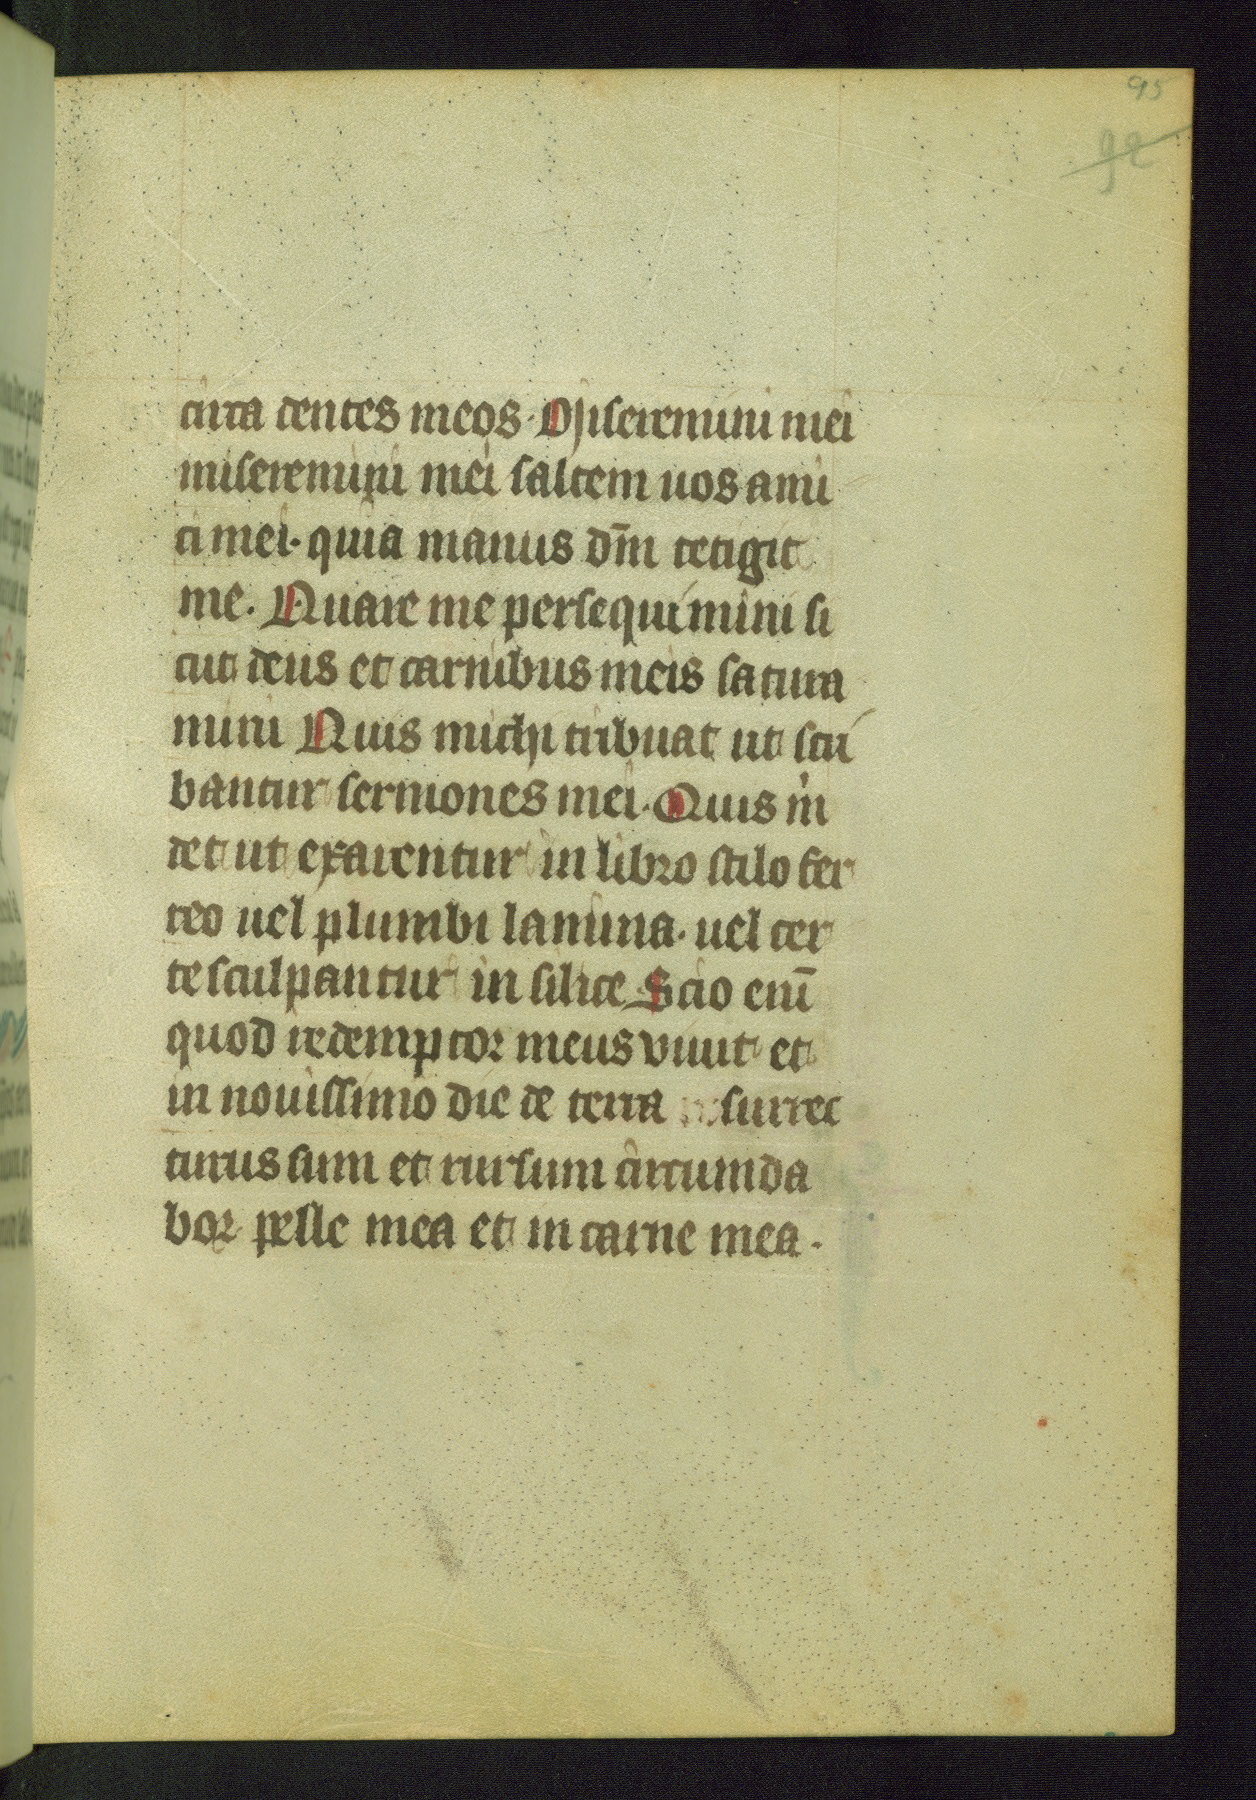 95
92
circa dentes meos · Miseremini mei
miseremini mei saltem uos ami
ci mei · quia manus dm̄ tetigit
me · Quare me persequimini si
cut deus et carnibus meis satura
mini Quis michi tribuat ut scri
bantur sermones mei · Quis m
det ut exarentur in libro stilo fer
reo uel plumbi lamina · uel cer
te sculpantur in silice Scio enī
quod redemptor meus viuit et
in nouissimo die de terra resurrec
turus sum et rursum circumda
bor pelle mea et in carne mea ·